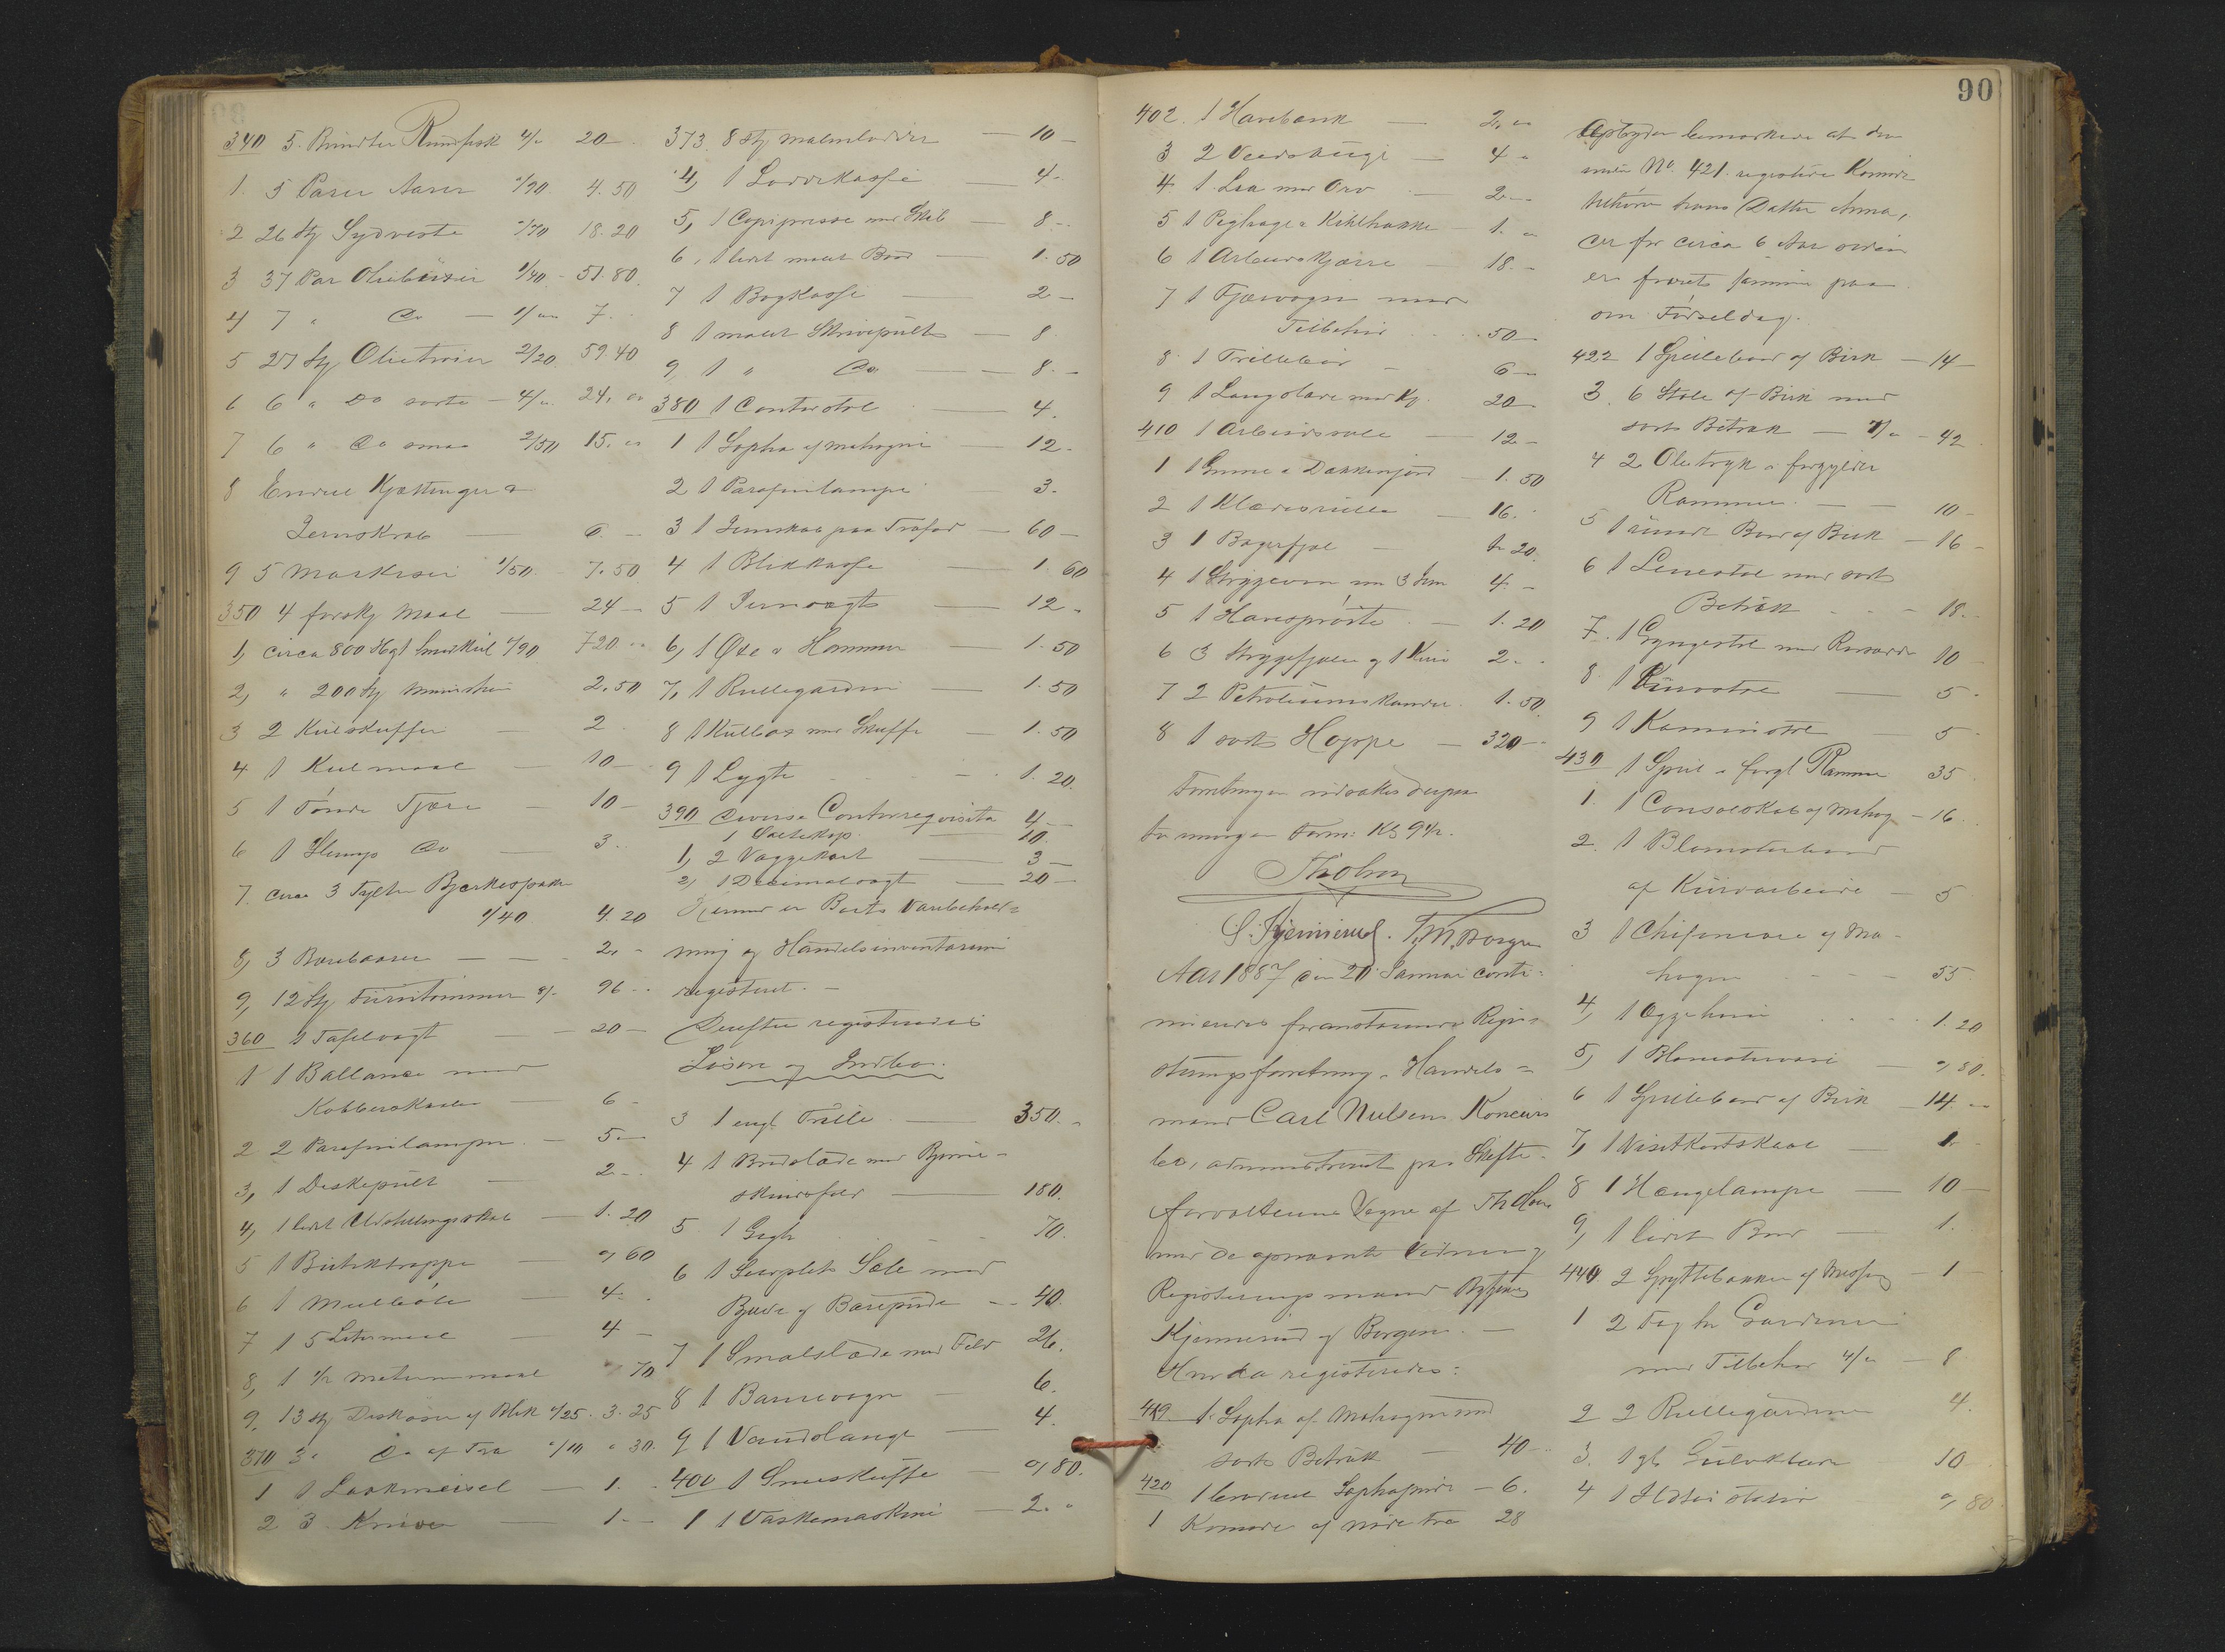 340 5. Bundter Rundfisk 4/- 20 -
1. 5 Parer Aarer "/90 4.50
2 26 Stk Sydveste "/70 18.20
3 37 Par Oliebuxer 1/40 - 51.80.
4 7 " Do — 1/- 7. -
5 27 Stk Olietrøier 2/20. 59.40
6 6 " Do sorte - 4/- 24. -
7 6 " Do smaa 2/50 15. -
8 Endeel Kjættinger &
Jernskrab — 6. -
9 5 Markiser 1/50 - 7.50
350 4 forskj Maal — 24 -
1, circa 800 Hgl Smikul "/90 720 -
2, " 200 Stk 2.50
3 2 Kulskuffer — 2.
4 1 Kulmaal — 10 -
5 1 Tønde Tjære — 10 -
6 1 Do — 3. -
7. circa 3 Tylter
1/40 4.20
8, 3 Børebaarer — 2. -
9, 12 Stk 8/- 96 -
360 1 Tafelvægt — 20 -
1 1 Ballance med
Kobberskaaler — 6 -
2 2 Parafinlamper. — 5 -
3, 1 Diskepult — 2 -
4, 1 lidet Udstillingsskab — 1.20
5 1 Butiktrappe — ", 60
6 1 — 4 -
7 1 5 Litermaal — 4 -
8, 1 1/2 70
9, 13 Stk af Blik "/25. 3.25
370 3 " Do af Træ "/10 " 30.
1 1 — 1.
2 3 Knive — 1 -
373. 8 Stk — 10 -
4, 1 Loddekasse 4 -
5, 1 Copipresse med — 8 -
6, 1 lidet malet Bord — 1.50
7 1 Bogkasse — 2 -
8 1 malet Skrivepult — 8
9 1 " Do — 8. -
380 1 Contorstol — 4.
1 1 Sopha af mahogni — 12 -
2 1 Parafinlampe — 3.
3 1 Jernskab paa Træfod — 60 -
4 1 Blikkasse — 1.60
5 1 Jernvægt — 12 -
6, 1 Øxe & Hammer — 1.50
7, 1 Rullegardin — 1.50
8 1 Kulbox med Skuffe — 1.50
9 1 Lygte — 1.20.
390 Diverse Contorreqvisita 4 -
1 10.
1, 2 Væggekart — 3 -
2, 1 Decimalvægt — 20 -
Hermed er Boets Varebehold=
ning og Handelsinventarium
registreret. -
Derefter registreredes
Løsøre og Indbo.
3 1 engl Trille — 350. -
4 1 Bredslæde med Bjørne-
skindsfeld — 180.
5 1 Gigh — 70.
6 1 Sølvplet Sæle med
Bjælde og Bærepude — 40.
7 1 Smalslæde med Feld 26.
8 1 Barnevogn — 6.
9 1 Vandslange — 4.
400 1 Sneeskuffe — ", 80.
1 1 Vaskemaskine — 2. "
90
402. 1 Havebænk — 2. -
3 2 — 4 -
4. 1 Lia med Orv — 2 -
5 1 & — 1. -
6 1 Arbeidskjærre — 18. -
7 1 Fjærvogn med
Tilbehør — 50 -
8 1 Trillebør — 6 -
9 1 Langslæde med 20 -
410 1 Arbeidssæle — 12 -
1 — 1.50
2 1 Klædesrulle — 16.
3 1 Bagerfjæl — 20
4 1 Strygeovn med 3 Jern 4. -
5 1 Havesprøite — 1.20
6 3 Strygefjæler og 1 2. -
7 2 Petroleumskander 1.50.
8 1 sort Hoppe — 320 -
Forretningen udsattes derpaa
til imorgen Form: Kl 9 1/2.
Th Olsen
S. Kjennerud. T. M. Borgen
Aar 1887 den 20 Januar conti=
nueredes foranstaaende Regi=
streringsforretning i Handels=
mand Carl Nielsens Koncurs
bo, administreret paa Skifte-
forvalterens Vegne af Th Olsen
med de opnævnte Vidner og
Registreringsmænd
Kjennerud og Borgen. —
Endda registreredes:
419 1. Sopha af Mahogni med
sort Betræk — 40 -
420 1 broderet Sophapude — 6.
1 Komode af Træ 28
Opbyder bemærkede at den
under No. 421. registrerede Komode
tilhører hans Datter Anna,
der for circa 6 Aar siden
er foræret samme paa
sin Fødselsdag.
422 1 Spillebord af Birk — 14 -
3. 6 Stole af Birk med
sort Betræk — 7/- - 42
4 2 Olietryk i forgyldte
Rammer — 10 -
5 1 rundt Bord af Birk — 16 -
6 1 Lænestol med sort
Betræk — 18. -
7. 1 Gyngestol med 10 -
8 1 Kurvstol — 5 -
9 1 Kaminstol — 5 -
430 1 Speil i forgl Ramme 35
1. 1 Consolskab af Mahog. — 16.
2. 1 Blomsterbord
af Kurvarbeide — 5
3 1 Chifoniere af Ma-
hogni — 55
4, 1 — 1.20
5, 1 Blomstervase — ", 80.
6 1 Spillebord af Birk — 14. -
7, 1 Visitkortskaal — 1. -
8 1 Hængelampe — 10 -
9, 1 lidet Bord — 1.
440. 2 Spyttebakker af Messing — 1 -
1 2 Fag Gardiner
med Tilbehør 4/- — 8
2 2 Rullegardiner 4.
3. 1 gl Gulvklæde 10
4 1 ", 80